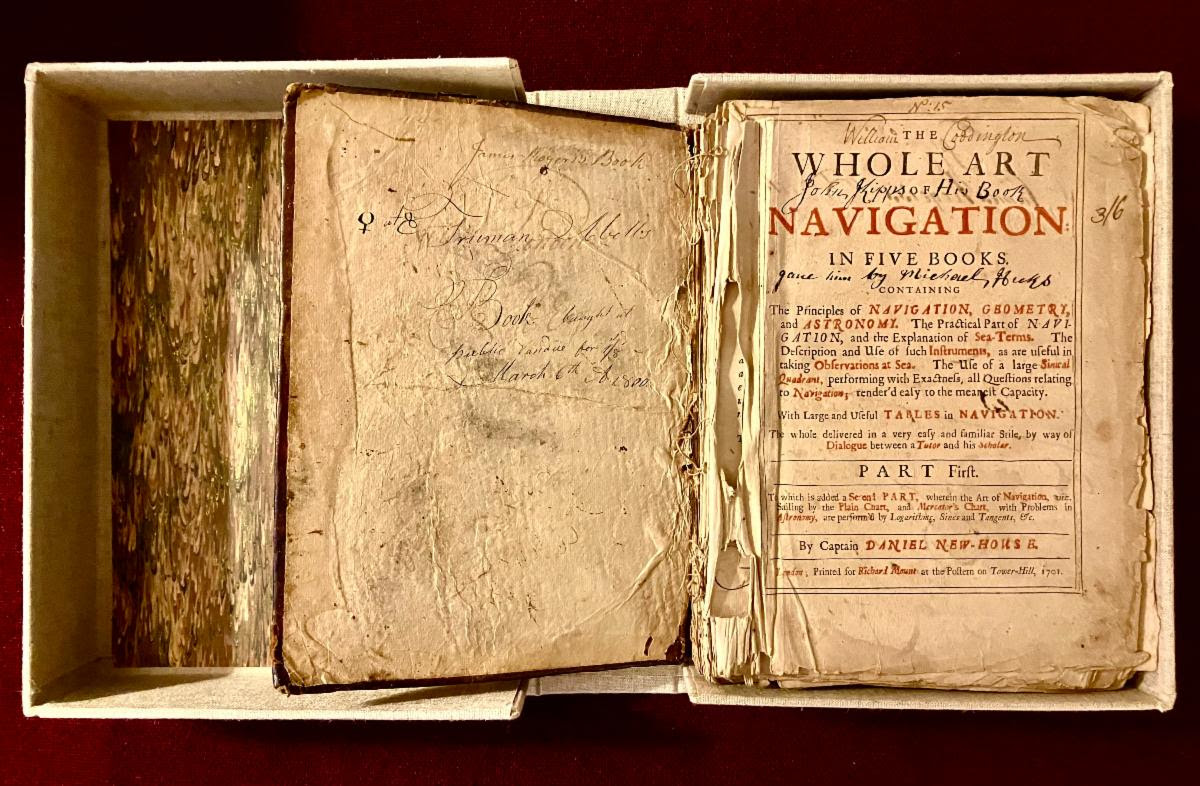 James Rogers's Book
♀ at
Truman Abells
Book bought at
public vandue for
March 6th A 1800
No. 15
William Coddington
THE
WHOLE ART
John Kipps His Book
OF
NAVIGATION:
IN FIVE BOOKS.
gave him by Michael Huks
CONTAINING
The Principles of NAVIGATION, GEOMETRY,
and ASTRONOMY. The Practical Part of NAVI-
GATION, and the Explanation of Sea-Terms. The
Description and Use of such Instruments, as are useful in
taking Observations at Sea. The Use of a large Sinical
Quadrant, performing with Exactness, all Questions relating
to Navigation; render'd easy to the meanest Capacity.
With Large and Useful TABLES in NAVIGATION.
The whole delivered in a very easy and familiar Stile, by way of
Dialogue between a Tutor and his Scholar.
PART First.
To which is added a Second PART, wherein the Art of Navigation, viz.
Sailing by the Plain Chart, and Mercator's Chart, with Problems in
Astronomy, are perform'd by Logarithms, Sines and Tangents, &c.
By Captain DANIEL NEW-HOUSE.
London, Printed for Richard Mount at the Postern on Tower-Hill, 1701.
3/6